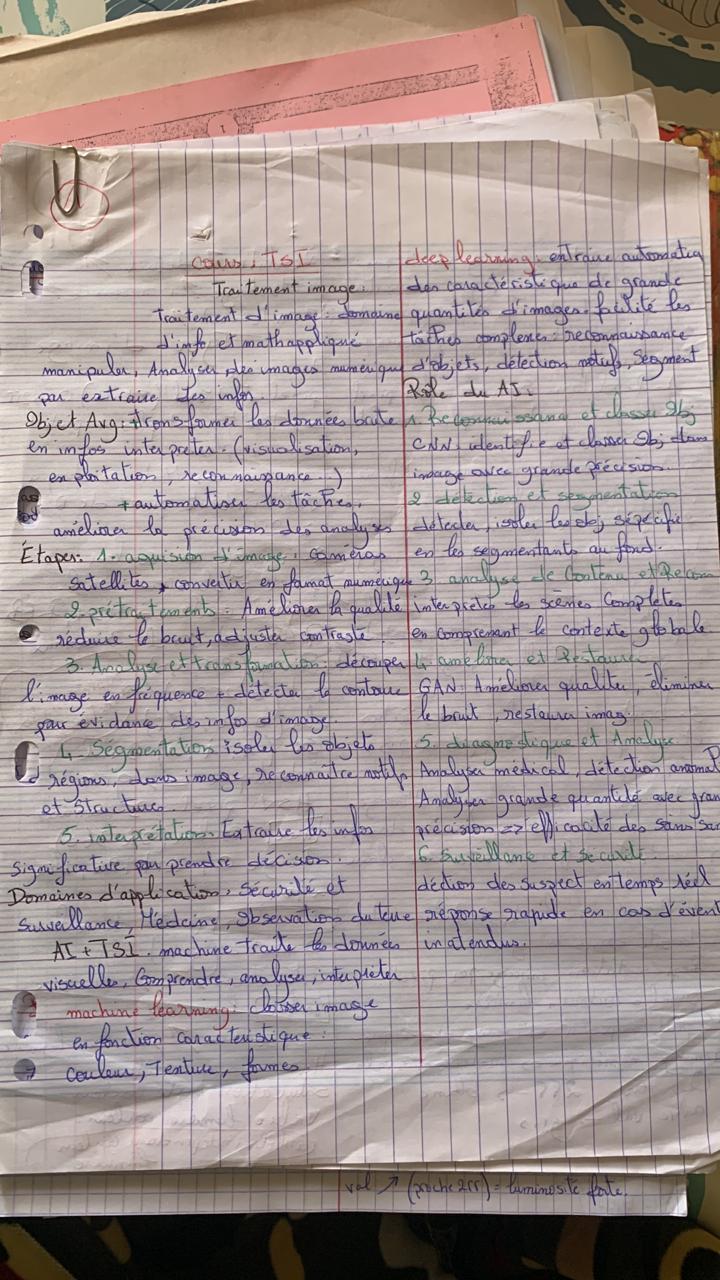 Cours : TSI
Traitement image :
Traitement d'image : domaine
d'info et mathappliqué
manipuler, Analyser des images numérique
par extraire des infos.
Obj et Avg : transformer les données brute
en infos interpreter. (visualisation,
exploitation, reconnaissance..)
+ automatiser les tâches,
améliorer la précision des analyses
Étapes : 1. aquision d'image : caméras
satellites, convertir en format numérique
2. prétraitements : Améliorer la qualité
réduire le bruit, adjuster contraste.
3. Analyse et transformation : découper
l'image en fréquence + détecter le contour
par évidance des infos d'image.
4. Ségmentation isoler les objets
régions, dans image, reconnaître motifs
et structures.
5. interprétation. Extraire les infos
significative pour prendre décision.
Domaines d'application, sécurité et
surveillance, Médcine, Observation du terre
AI + TSI. machine traite les données
visuelles, Comprendre, analyser, interpreter
machine learning : classer image
en fonction caracteristique :
Couleur, Texture, formes
deep learning : entraine automatiq
des caractéristique de grande
quantités d'images. facilité les
tâches complexe : reconnaissance
d'objets, détection motifs, segment
Rôle du AI :
1. Reconnaissance et classer Obj
CNN identifie et classer Obj dans
image avec grande précision.
2 détection et segmentation
détecter, isoler les obj sépcific
en les segmentants au fond.
3. analyse de Contenu et Recon
interpreter les scènes Completes
en comprenant le contexte globale
4. améliorer et Restaurer
GAN : Améliorer qualiter, éliminer
le bruit, restaurer imag.
5. diagnostique et Analyse
Analyser médical, détection anomal
Analyser grande quantité avec gran
précision => efficacité des
6. surveillance et securité.
déction des suspect en temps réel
réponse rapide en cas d'évent
inatendus.
val ↗ (proche 255) = luminosité forte.